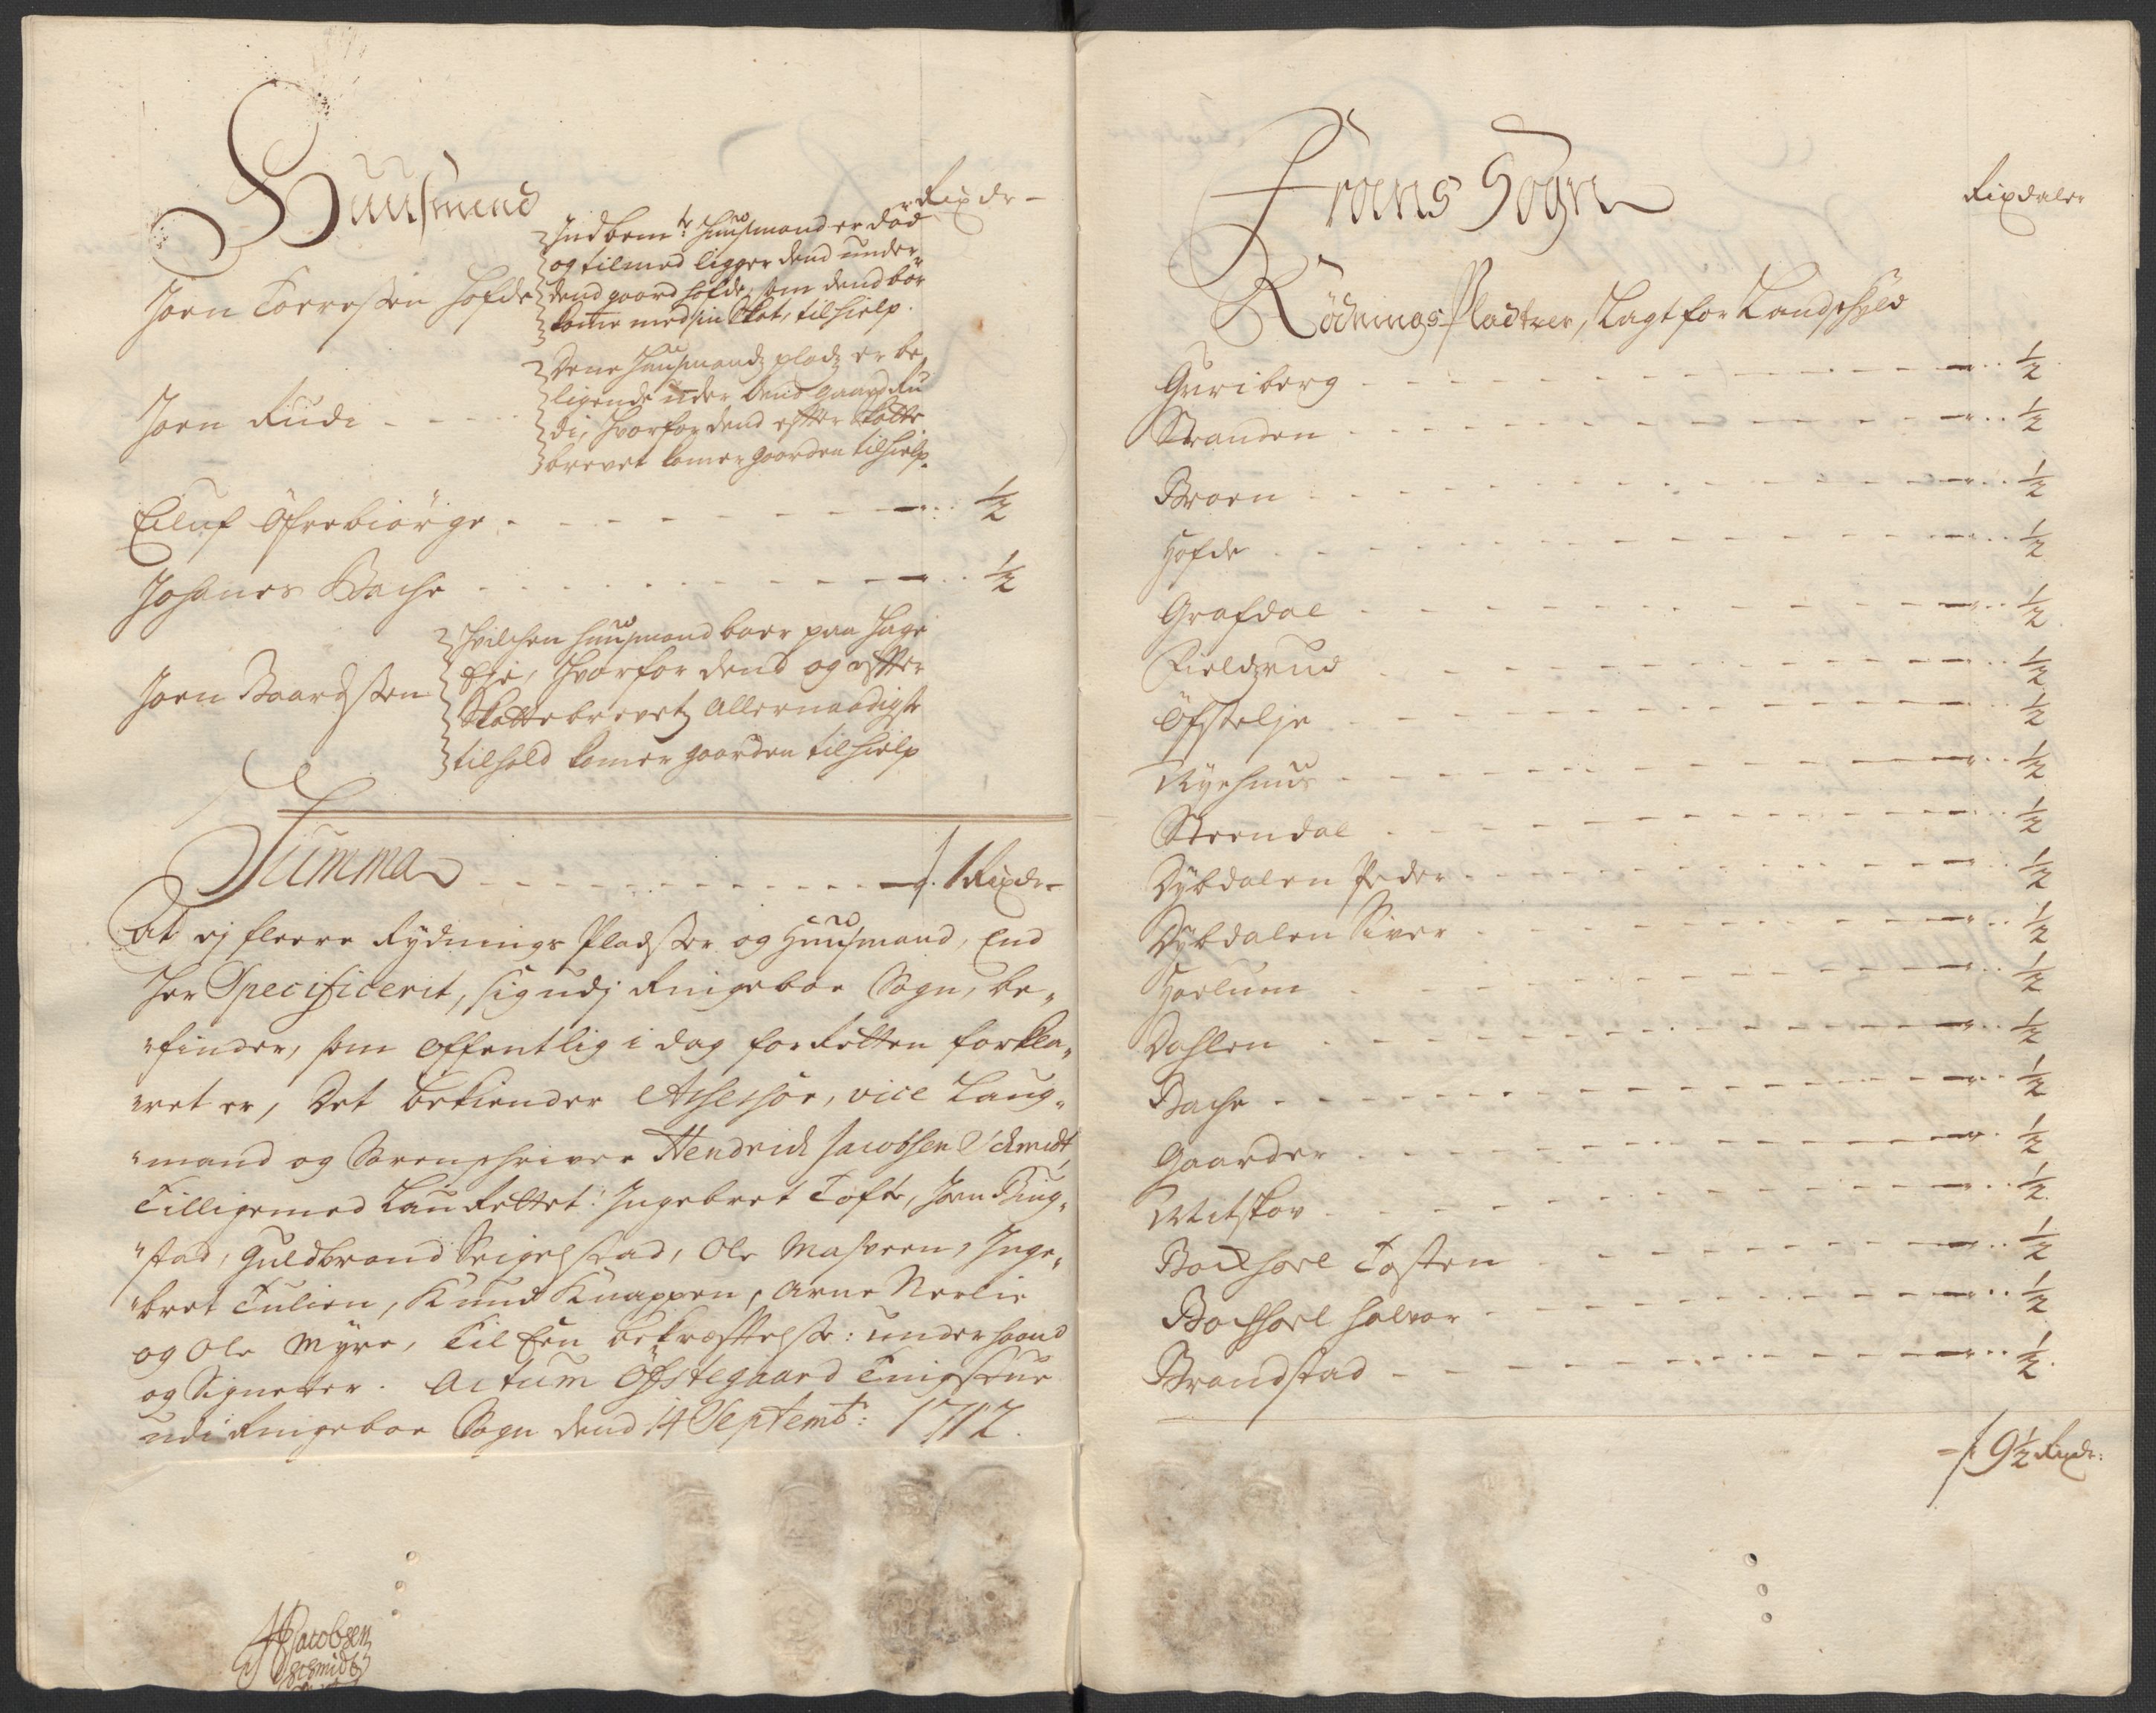 Huusmend
Rixdr
Joen Torressen Hofde
Indbemte Huusmand er död
og tilmed ligger dend under
dend gaard Hofde, som dend bör
komme med sin Skat, til hielp.
Joen Rudi - -
Denne Huusmandz pladz er be„
ligende under dend gaard Ru
di, hvorfor dend efter Skatte
brevet komer gaarden til hielp.
Eiluf Öfrebiörge - - - - ½
Johanes Bache - - - - ½
Joen Baardssen
Hvilchen Huusmand boer paa Hage
Eje, hvorfor dend og efter
Skattebrevetz Allernaadigste
tilhold komer gaarden til hielp
Summa - - - - 1 Rixdr
At ej fleere Rydnings Pladser og Huusmænd, End
her Specificerit, sig udj Ringeboe Sogn, be„
„finder, som offentlig i dag for Retten forkla„
„ret er, Det bekiender Assessor, vice Laug„
„mand og Sorenschriver Hendrich Jacobsen Schmidt,
Tilligemed Lau Rettet: Ingebret Tofte, Joen
„stad, Guldbrand Seigelstad, Ole Masveen, Inge„
„bret Tulien, Knud Knappen, Arne Norlie
og Ole Myre, Til Een bekræftelse: under haand
og Signeter. Actum Öfstegaard Tingstue
udi Ringeboe Sogn dend 14 Septembr: 1712.
HJacobsen
Schmidt
Frons Sogn
Rixdaler
Rödnings Pladtzer, Lagt for Landschyld
Guriberg - - - - ½
Stranden - - - - ½
Broen - - - - ½
Hofde - - - - ½
Grafdal - - - - ½
Fieldzrud - - - - ½
Öfstelje - - - - ½
Ryehuus - - - - ½
Steendal - - - - ½
Dybdalen Peder - - - - ½
Dybdalen Siver - - - - ½
Harlum - - - - ½
Dahlen - - - - ½
Bache - - - - ½
Gaarder - - - - ½
Mitskov - - - - ½
Bochharl Tosten - - - - ½
Bochharl Halvor - - - - ½
Brandstad - - - - ½
9½ Rixdr: